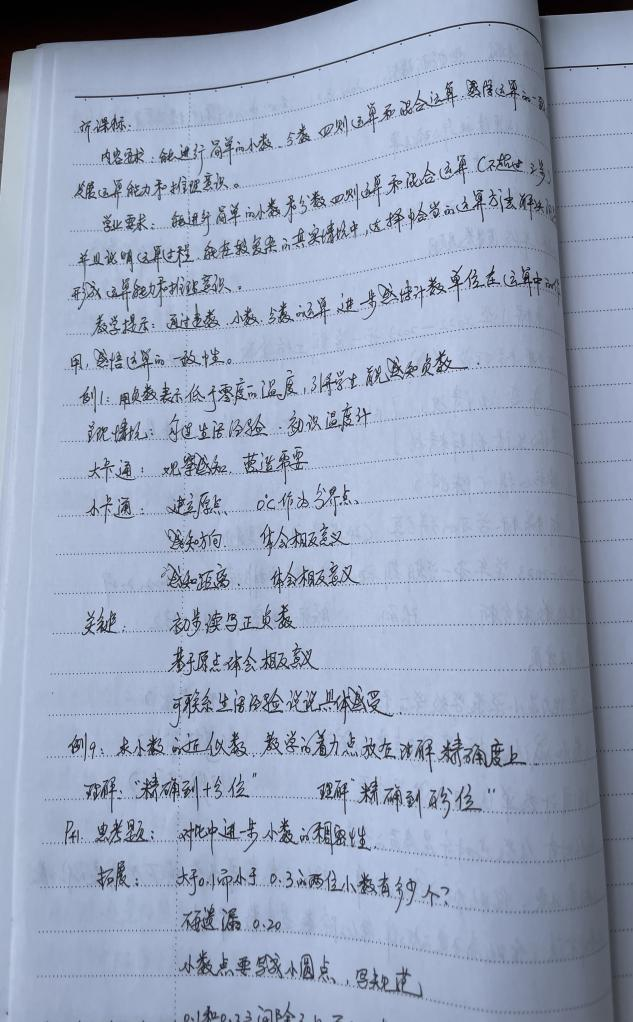 新课标:
内容要求:能进行简单的小数、分数四则运算和混合运算,感悟运算的一致
发展运算能力和推理意识。
学业要求:能进行简单的小数和分数四则运算和混合运算(不超过三步)
并且说明运算过程,能在较复杂的真实情境中,选择恰当的运算方法解决
形成运算能力和推理意识。
教学提示:通过整数、小数、分数的运算,进一步感悟计数单位在运算中的作
用,感悟运算的一致性。
例1:用负数表示低于零度的温度,引导学生 感知负数
情境: 生活经验,初识温度计
大卡通:观察感知,营造需要
小卡通:建立原点、0℃作为分界点、
感知方向 体会相反意义
感知距离 体会相反意义
关键:初步读写正负数
基于原点体会相反意义
可联系生活经验说说具体感受
例9:求小数的近似数,教学的着力点放在 精确度上
理解:“精确到十分位” 理解“精确到百分位”
P41 思考题:对比中进一步小数的稠密性.
拓展:大于0.1而小于0.3的两位小数有多少个?
不遗漏0.20
小数点要写成小圆点,写规范